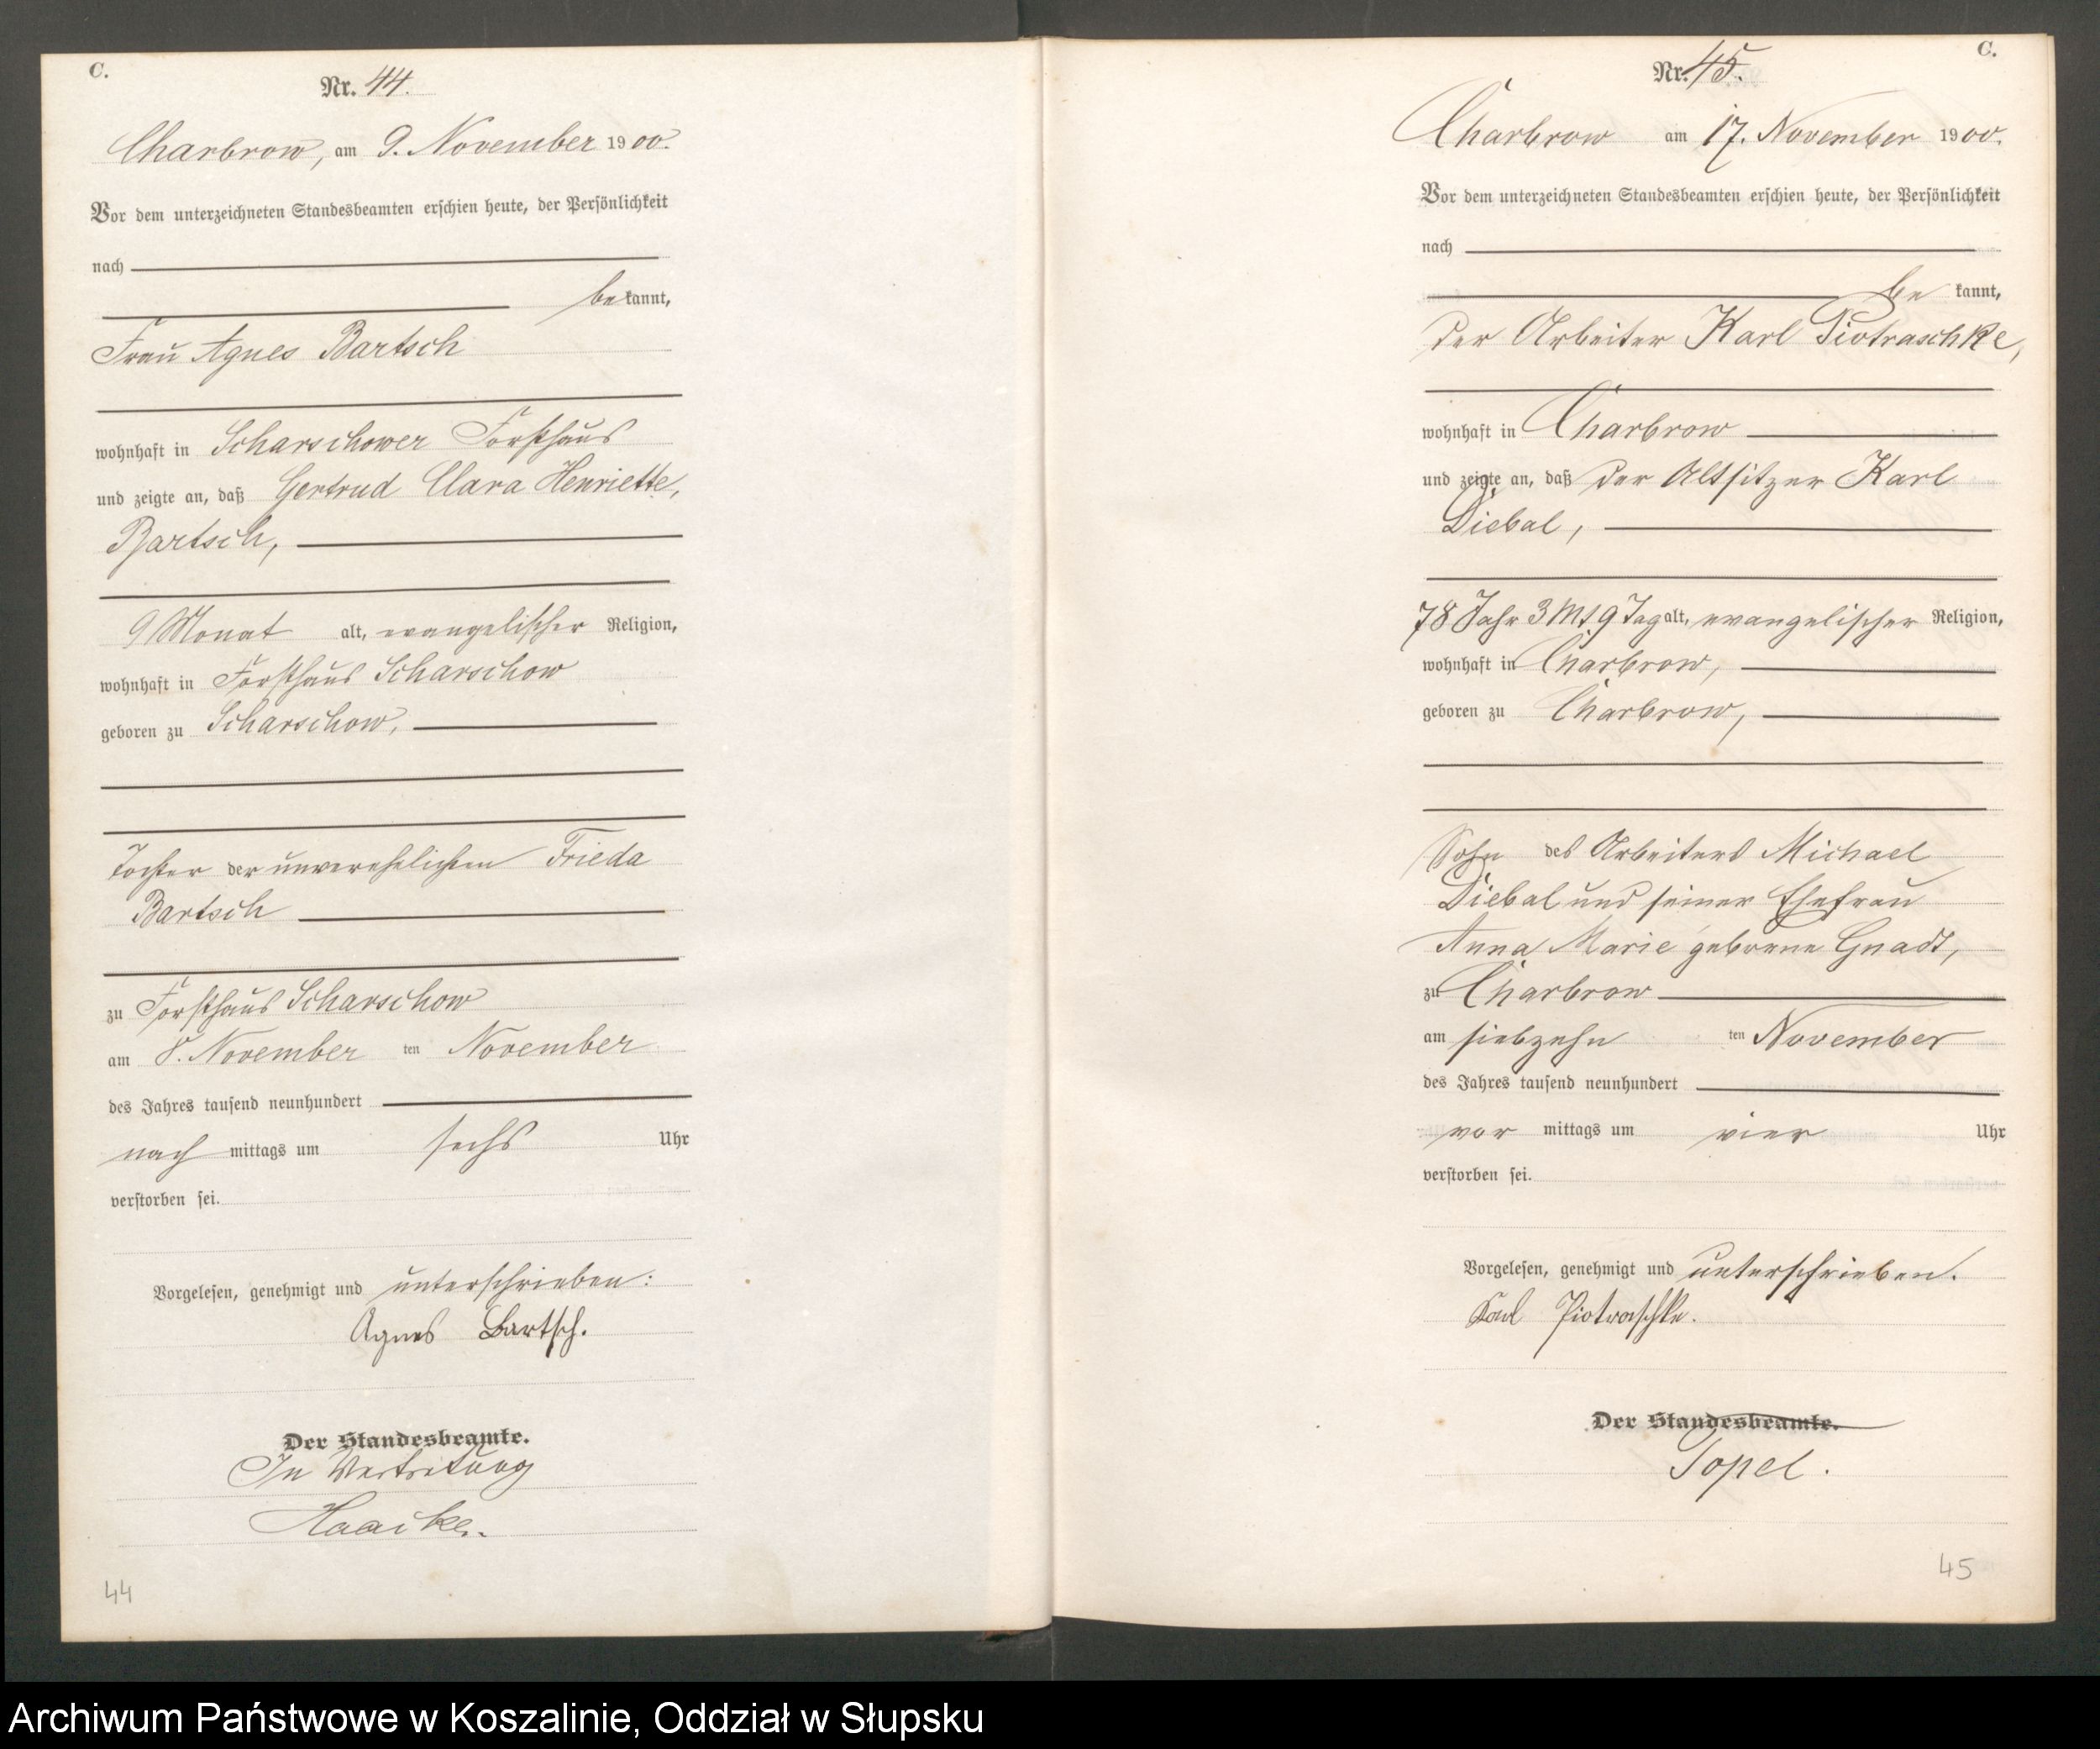 C.
Nr. 44.
Charbrow, am 9. November 1900.
Vor dem unterzeichneten Standesbeamten erschien heute, der Persönlichkeit
nach
bekannt,
Frau Agnes Bartsch
wohnhaft in Scharschower Forsthaus
und zeigte an, daß Gertrud Clara Henriette,
Bartsch,
9 Monat alt, evangelischer Religion,
wohnhaft in Forsthaus Scharschow
geboren zu Scharschow,
Tochter der unverehelichten Frieda
Bartsch
zu Forsthaus Scharschow
am 8. November ten November
des Jahres tausend neunhundert
nach mittags um sechs Uhr
verstorben sei.
Vorgelesen, genehmigt und unterschrieben:
Agnes Bartsch.
Der Standesbeamte.
In Vertretung
Haacke.
44
C.
Nr. 45.
Charbrow am 17. November 1900.
Vor dem unterzeichneten Standesbeamten erschien heute, der Persönlichkeit
nach
be kannt,
der Arbeiter Karl Piotraschke,
wohnhaft in Charbrow
und zeigte an, daß der Altsitzer Karl
Diebal,
78 Jahr 3 Mt 9 Tag alt, evangelischer Religion,
wohnhaft in Charbrow,
geboren zu Charbrow,
Sohn des Arbeiters Michael
Diebal und seiner Ehefrau
Anna Marie geborene Gnadt,
zu Charbrow
am siebzehn ten November
des Jahres tausend neunhundert
vor mittags um vier Uhr
verstorben sei.
Vorgelesen, genehmigt und unterschrieben.
Karl Piotraschke.
Der Standesbeamte.
Topel.
45
Archiwum Państwowe w Koszalinie, Oddział w Słupsku